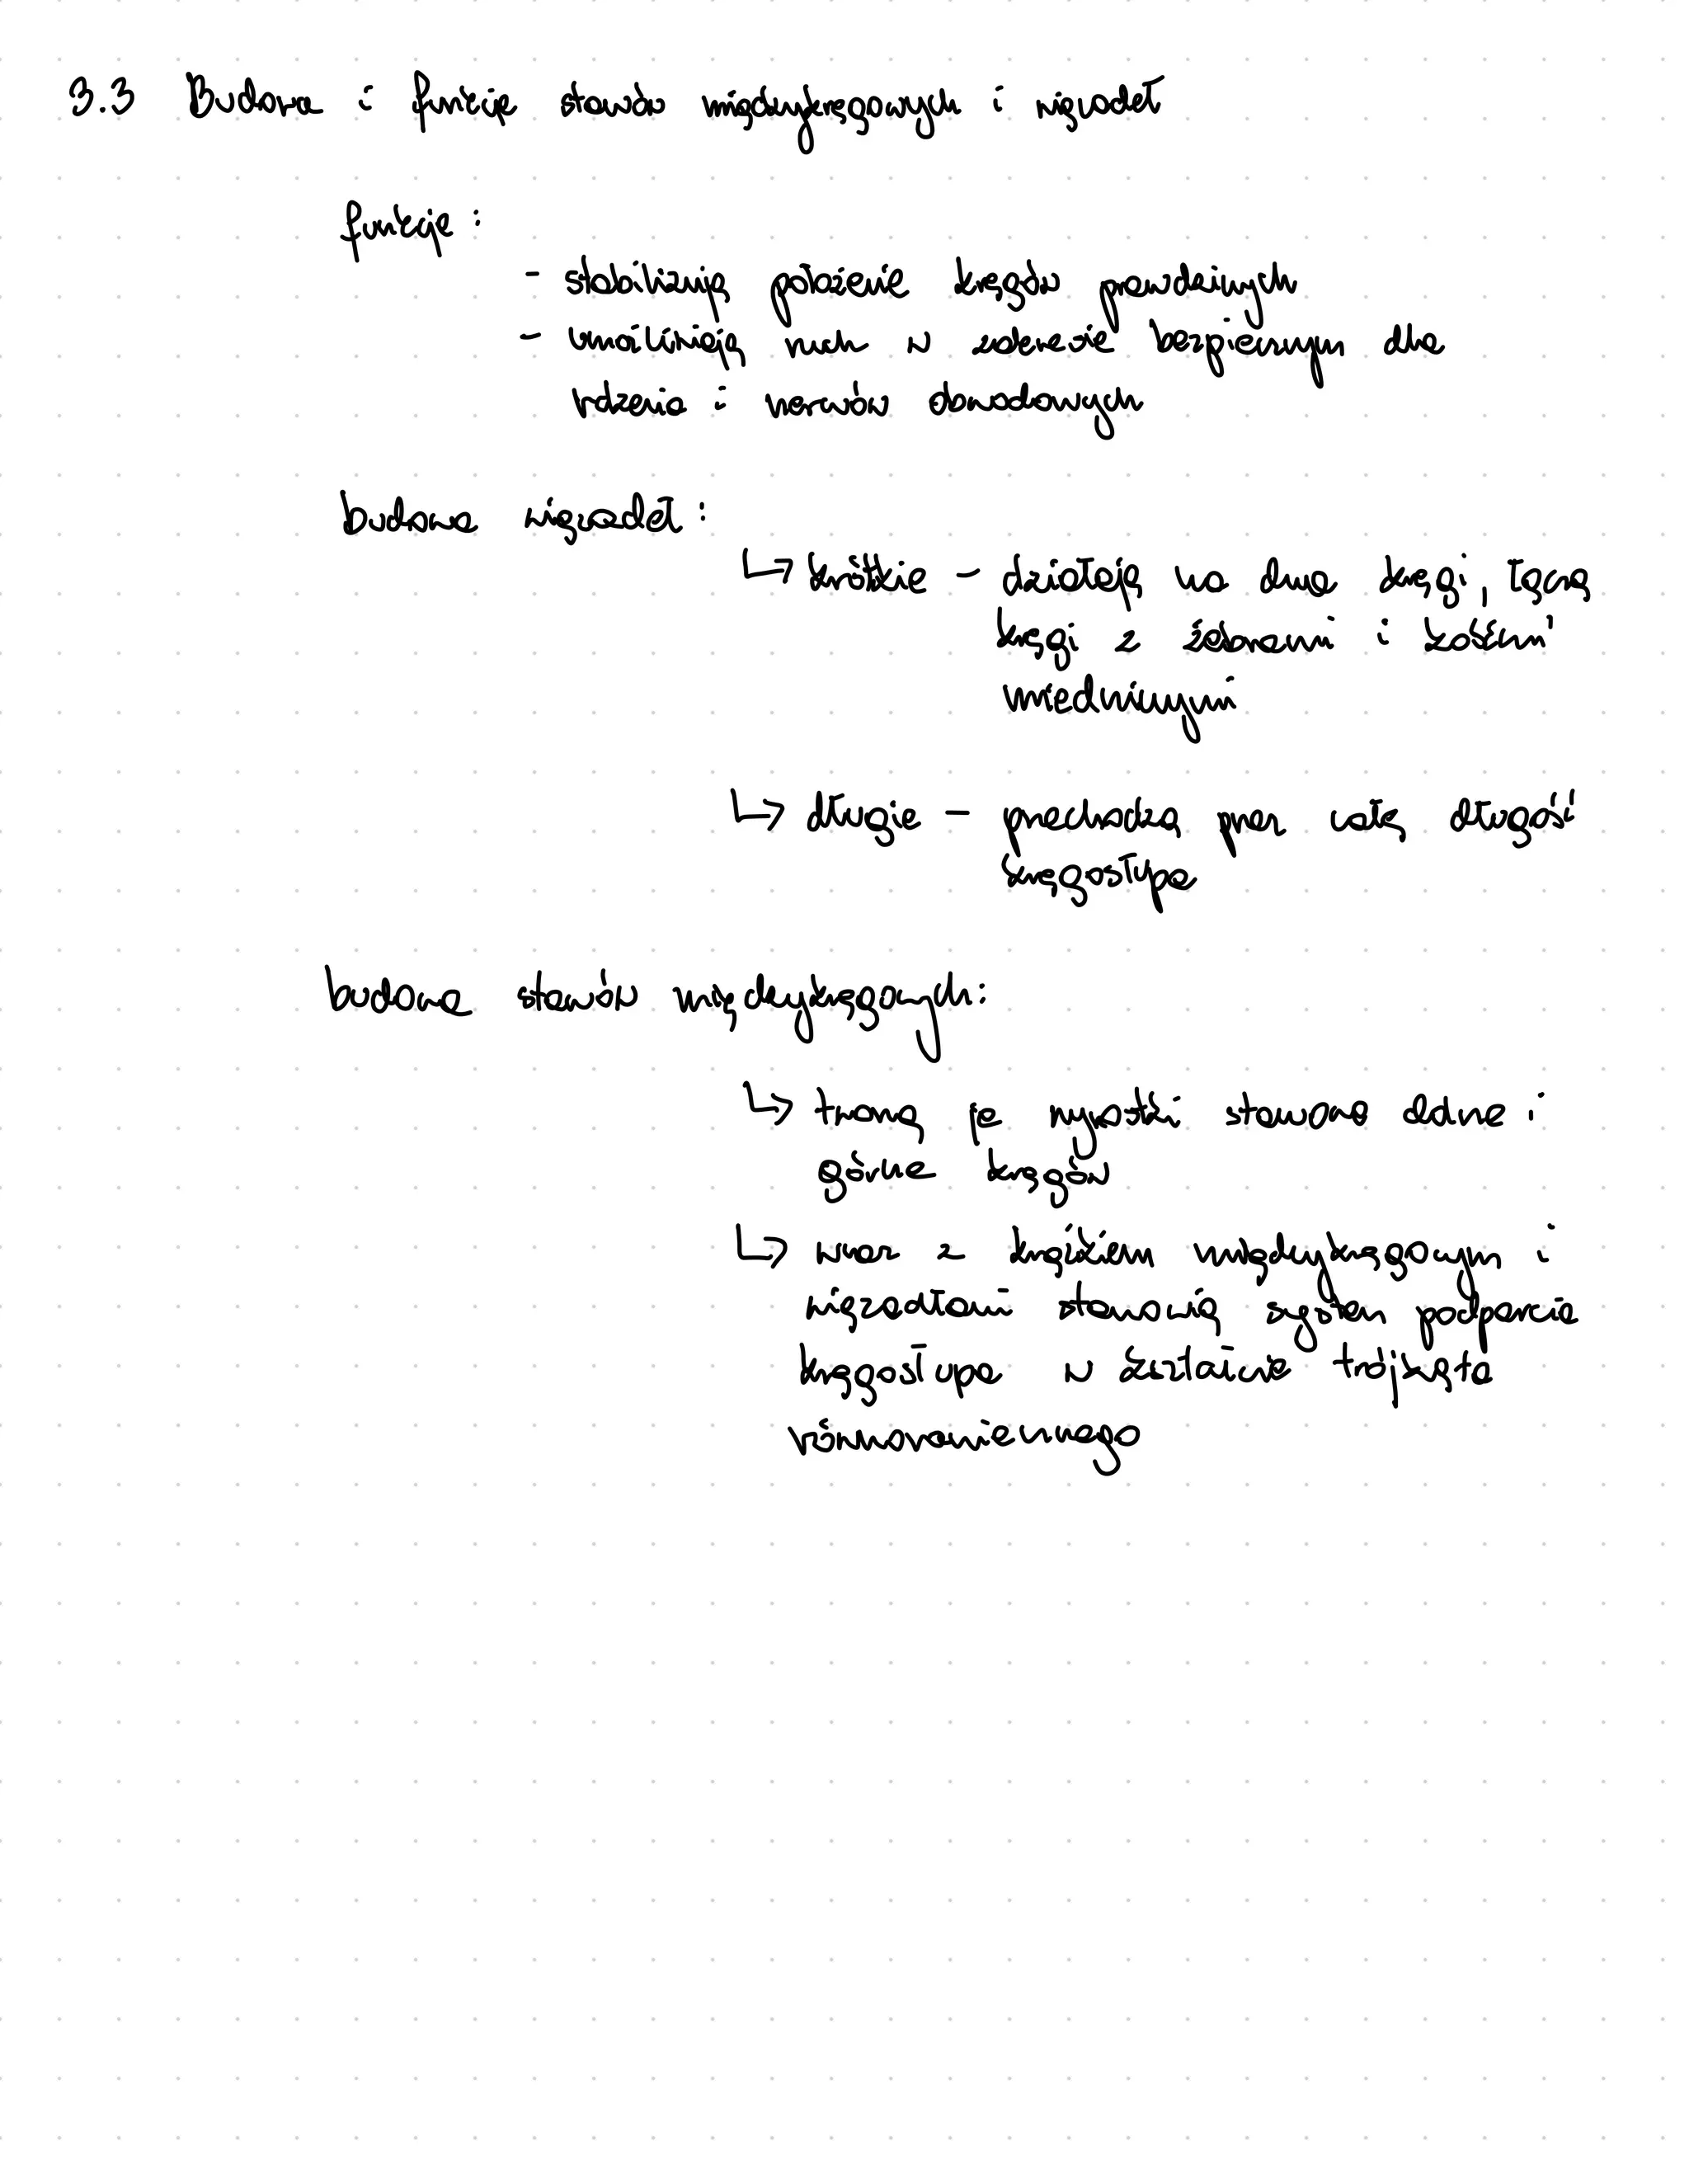 3.3 Budowa i funkcje stawów międzykręgowych i więzadeł
funkcje:
- stabilizują położenie kręgów prawdziwych
- umożliwiają ruch w zakresie bezpiecznym dla
rdzenia i nerwów obwodowych
budowa więzadeł:
↳ krótkie - działają na dwa kręgi, łączą
kręgi z żebrami i kośćmi
miednicznymi
↳ długie - przechodzą przez całą długość
kręgosłupa
budowa stawów międzykręgowych:
↳ tworzą je wyrostki stawowe dolne i
górne kręgów
↳ wraz z krążkiem międzykręgowym i
więzadłami stanowią system podparcia
kręgosłupa w kształcie trójkąta
równoramiennego